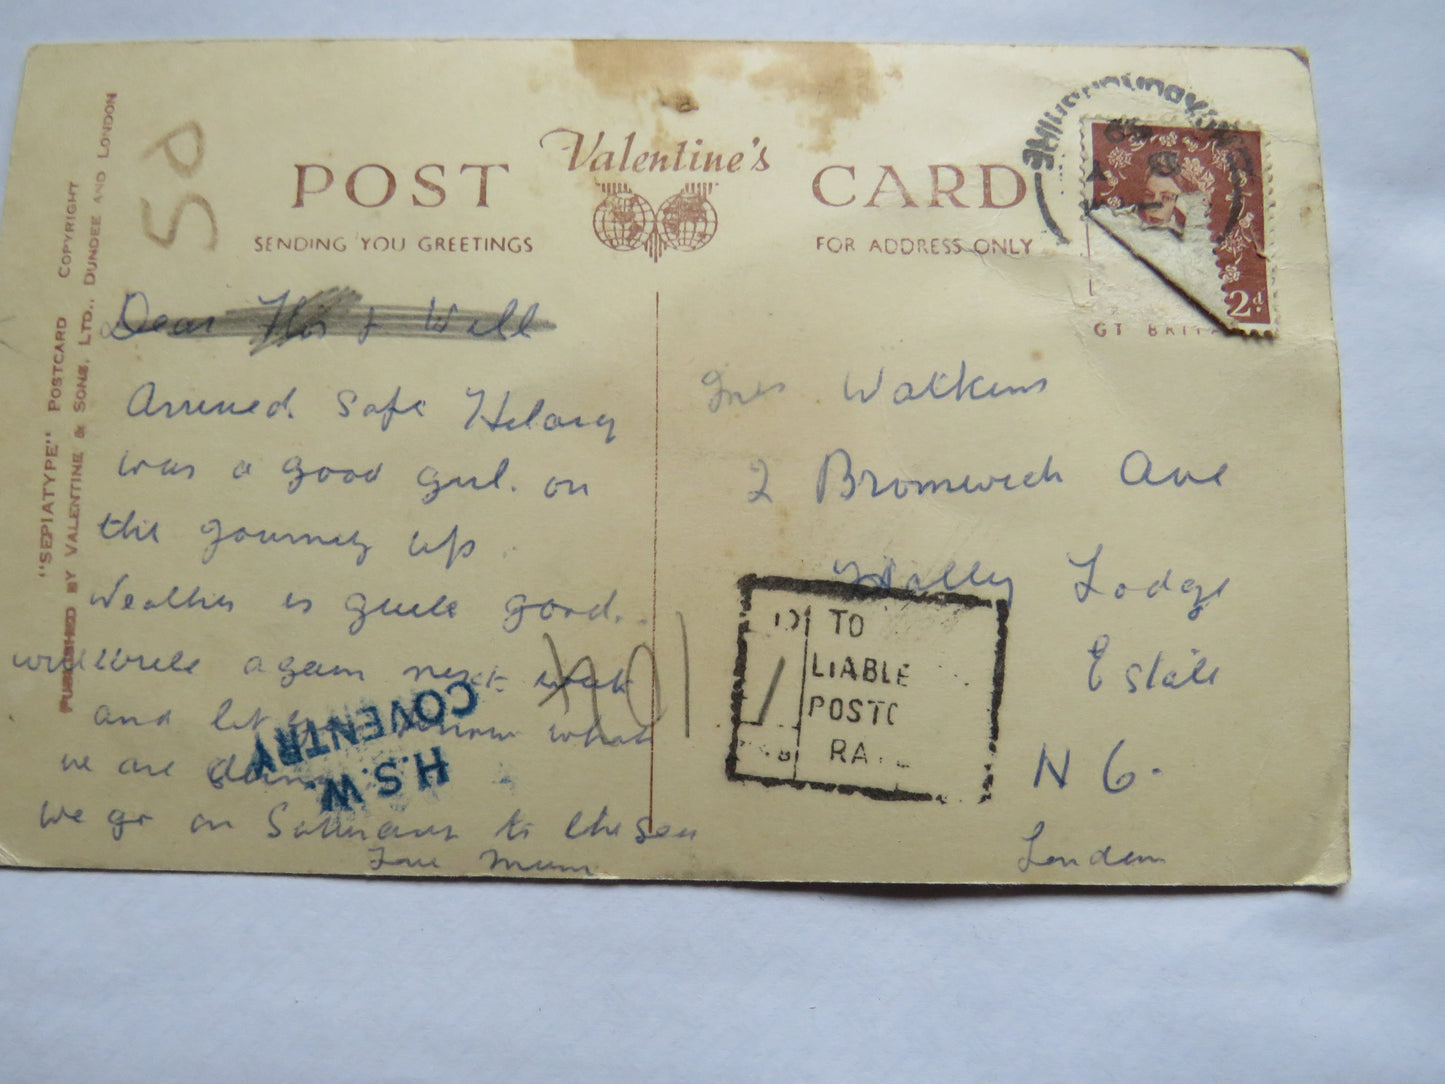 "SEPIATYPE" POSTCARD COPYRIGHT
PUBLISHED BY VALENTINE & SONS, LTD., DUNDEE AND LONDON
5d
Valentine's
POST CARD
SENDING YOU GREETINGS
FOR ADDRESS ONLY
2d
GT BRITA
Dear Flo & Will
Arrived Safe Hilary
was a good girl. on
the journey up.
Weather is quite good.
will write again next week
and let you know what
we are doing
we go on Saturday to the sea
Love Mum
H.S.W.
COVENTRY
Mrs Watkins
2 Bromwich Ave
Holly Lodge
Estate
N 6.
London
TO
LIABLE
POSTC
RA